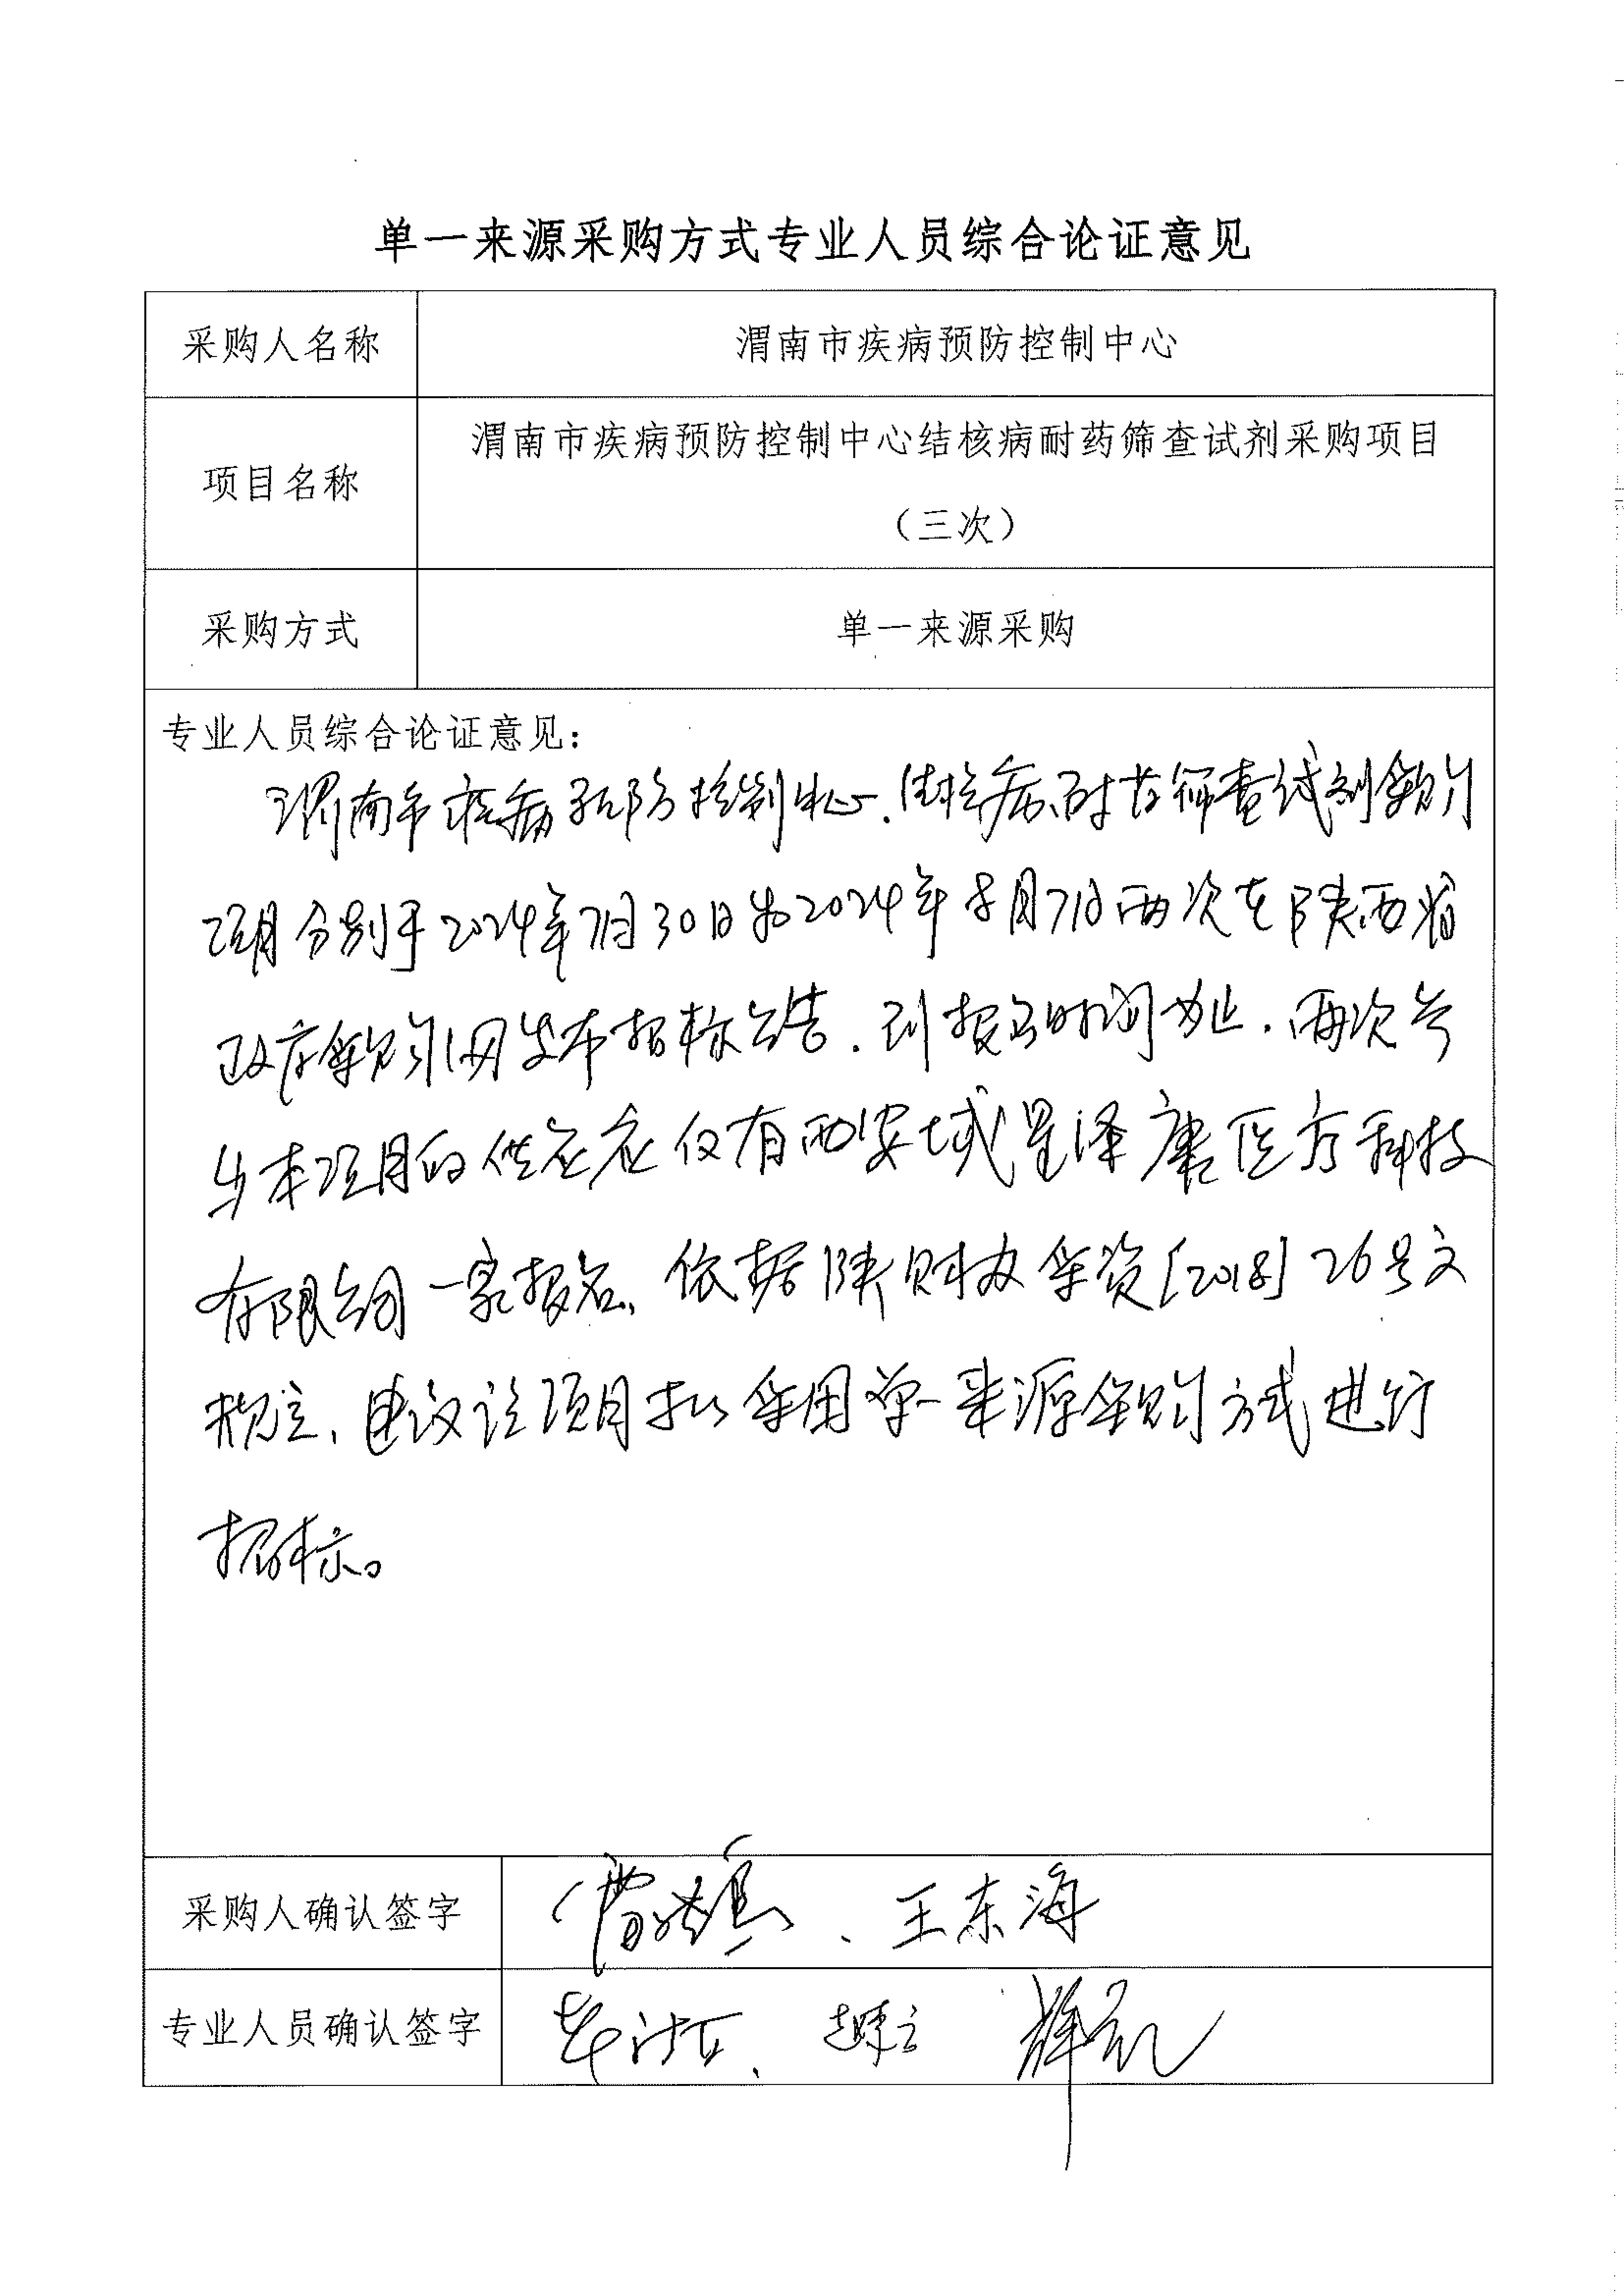 单一来源采购方式专业人员综合论证意见
采购人名称
渭南市疾病预防控制中心
项目名称
渭南市疾病预防控制中心结核病耐药筛查试剂采购项目
（三次）
采购方式
单一来源采购
专业人员综合论证意见：
渭南市疾病预防控制中心.结核病耐药筛查试剂采购
项目分别于2024年7月30日和2024年8月7日两次在陕西省
政府采购网发布招标公告.到报名时间为止.两次参
与本项目的供应商仅有西安域星泽康医疗科技
有限公司一家报名.依据陕财办采资[2018]26号文
规定、建议该项目拟采用单一来源采购方式进行
招标。
采购人确认签字
、王东海
专业人员确认签字